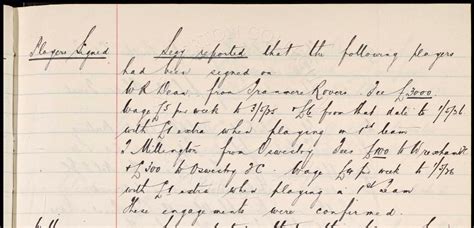 Players Signed Secy reported that the following players
had been signed on
W R Dean from Tranmere Rovers. Fee £3000.
Wage £5 per week to 3/5/25 & £6 from that date to 1/5/26
with £1 extra when playing in 1st team
J Millington from Oswestry Fee £100 to Wrexham FC
& £300 to Oswestry FC. Wage £4 per week to 1/5/26
with £1 extra when playing a 1st Team
These engagements were confirmed.